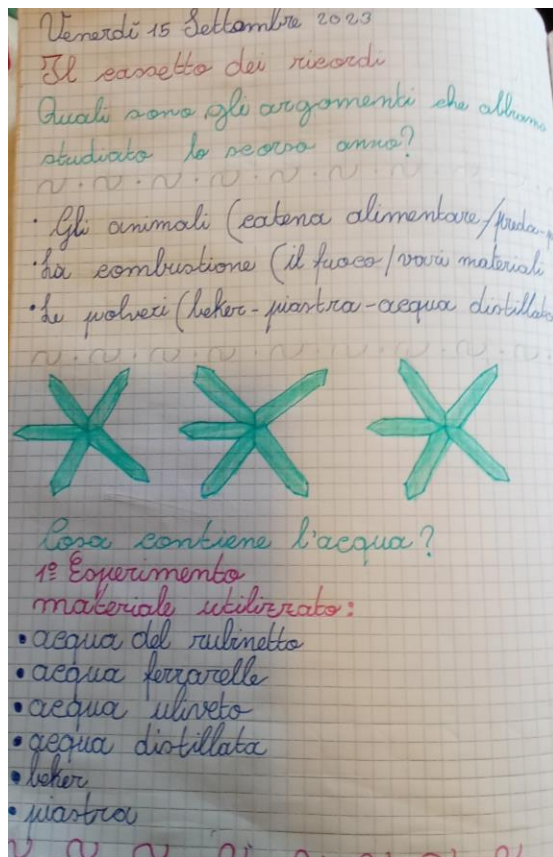 Venerdì 15 Settembre 2023
Il cassetto dei ricordi
Quali sono gli argomenti che abbiamo
studiato lo scorso anno?
• Gli animali (catena alimentare/preda-
• La combustione (il fuoco/vari materiali
• Le polveri (beker-piastra-acqua distillata
Cosa contiene l'acqua?
1º Esperimento
materiale utilizzato:
• acqua del rubinetto
• acqua ferrarelle
• acqua uliveto
• acqua distillata
• beker
• piastra